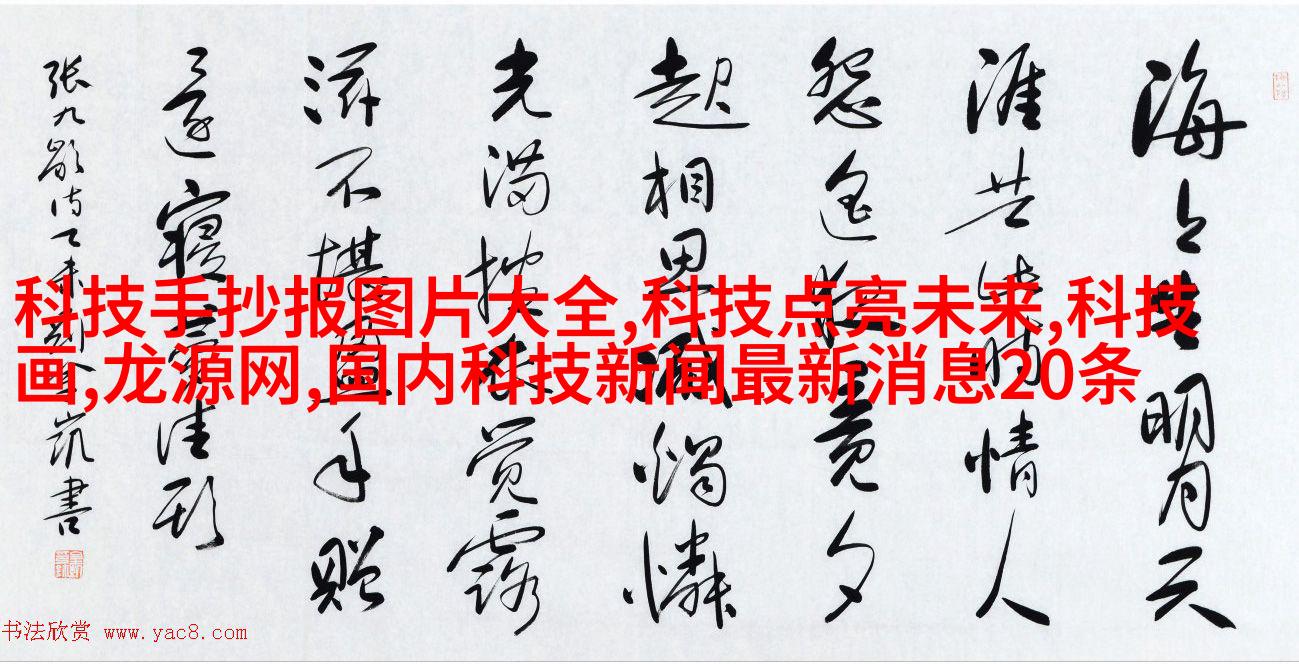 海上生明月天
涯共此時情人
怨遥夜竟夕
起相思滅燭憐
光满披衣觉露
滋不堪盈手赠
還寝夢佳期
张九龄诗乙未凯書
科技手抄报图片大全,科技点亮未来,科技
画,龙源网,国内科技新闻最新消息20条
书法欣赏 www.yac8.com